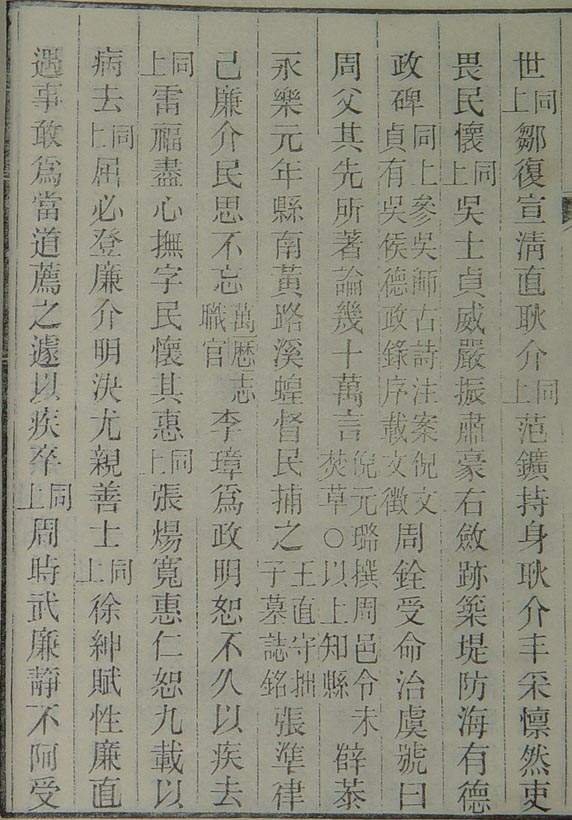 世同上鄒復宣淸直耿介同上范鑛持身耿介丰采懍然吏
畏民懷同上吳士貞威嚴振肅豪右斂跡築堤防海有德
政碑同上參吳師古詩注案倪文貞有吳侯德政錄序載文徵周銓受命治虞號曰
周父其先所著論幾十萬言倪元璐撰周邑令未焚草〇以上知縣辥
永樂元年縣南黃路溪蝗督民捕之王直守拙子墓誌銘張準律
己廉介民思不忘萬歷志職官李璋爲政明恕不久以疾去
同上雷福盡心撫字民懷其惠同上張煬寬惠仁恕九載以
病去同上屈必登廉介明決尤親善士同上徐紳賦性廉直
遇事敢爲當道薦之遽以疾卒同上周時武廉靜不阿受